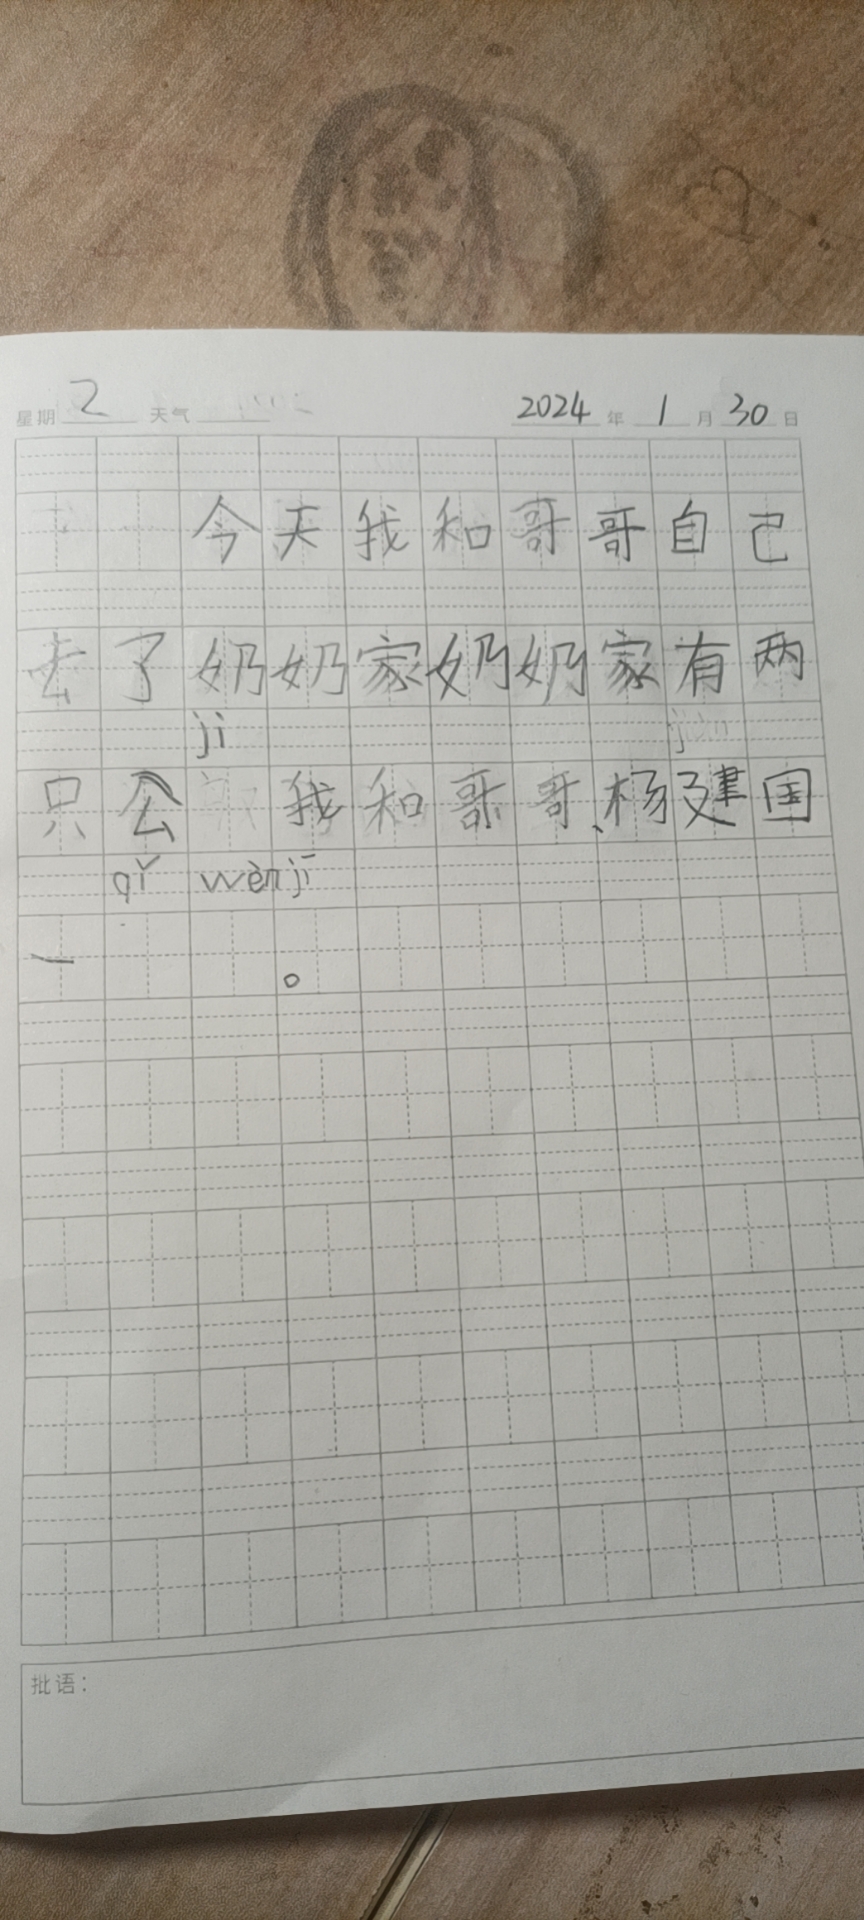 星期 2 天气 2024 年 1 月 30 日
今天我和哥哥自己
去了奶奶家奶奶家有两
jī
只公 我和哥哥、杨建国
qǐ wèn jī
一 。
批语：